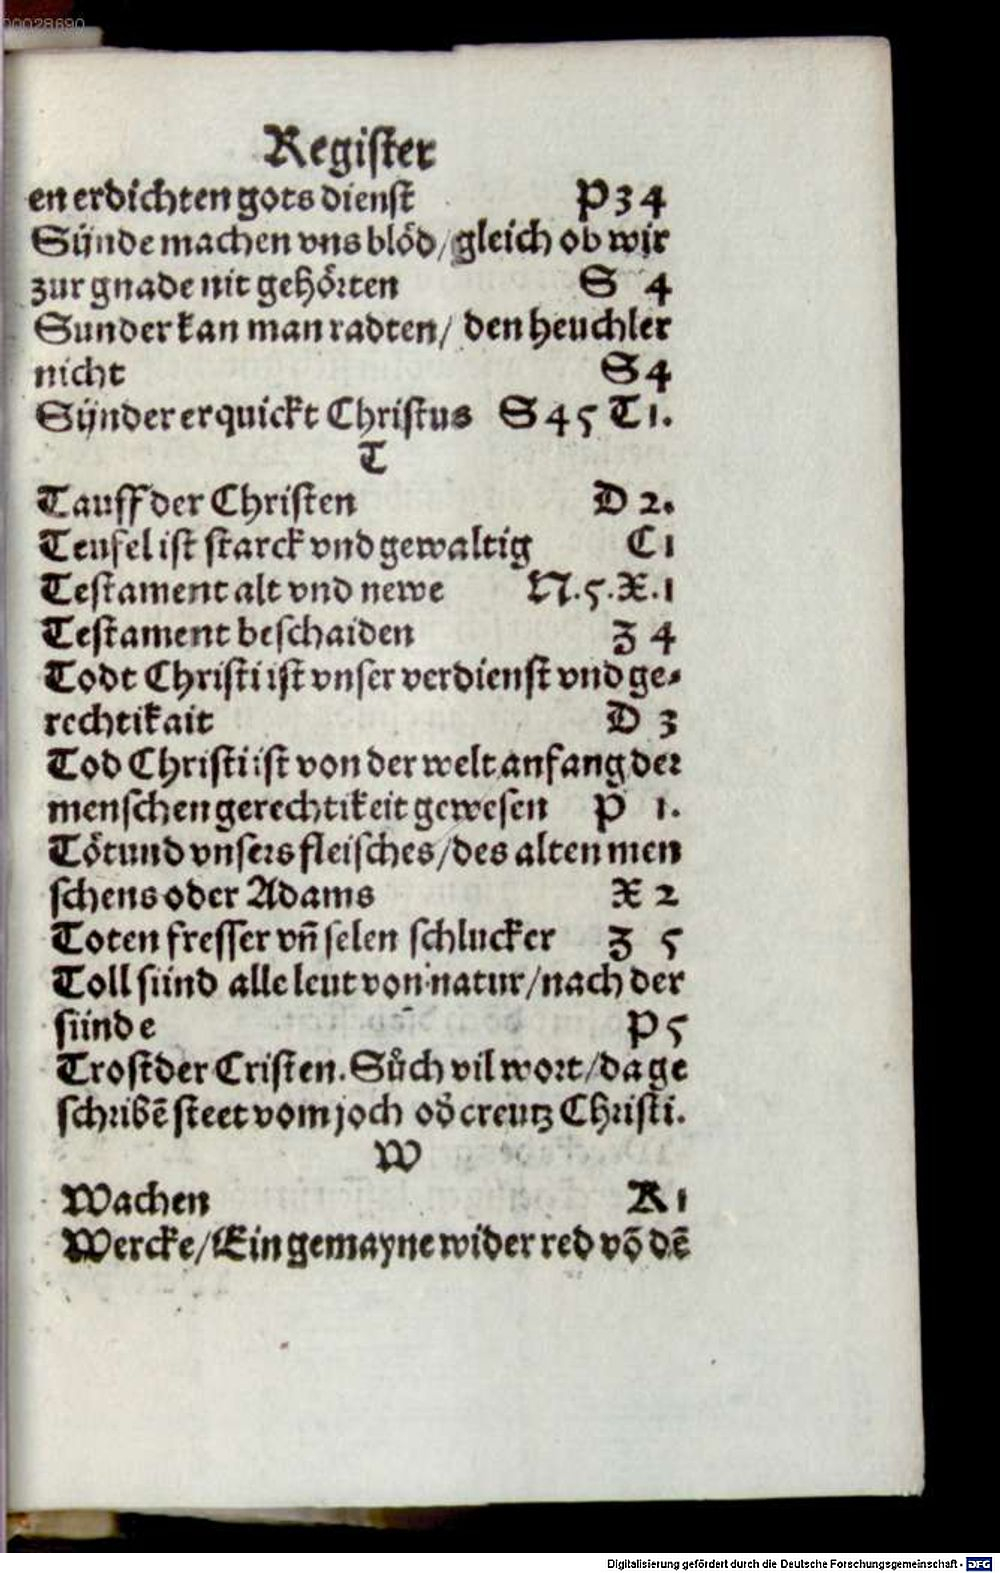 00028690
Register
en erdichten gots dienst P 3 4
Sünde machen vns blöd/gleich ob wir
zur gnade nit gehörten S 4
Sunder kan man radten/ den heuchler
nicht S 4
Sünder erquickt Christus S 4 5 T 1.
T
Tauff der Christen D 2.
Teufel ist starck vnd gewaltig C 1
Testament alt vnd newe N.5.X.1
Testament beschaiden Z 4
Todt Christi ist vnser verdienst vnd ge⸗
rechtikait D 3
Tod Christi ist von der welt anfang der
menschen gerechtikeit gewesen P 1.
Tötund vnsers fleisches/des alten men
schens oder Adams X 2
Toten fresser vn̄ selen schlucker Z 5
Toll sünd alle leut von natur/nach der
sünde P 5
Trost der Cristen. Sůch vil wort/da ge
schribē steet vom joch od̕ creutz Christi.
W
Wachen R 1
Wercke/Ein gemayne wider red vō dē
Digitalisierung gefördert durch die Deutsche Forschungsgemeinschaft - DFG